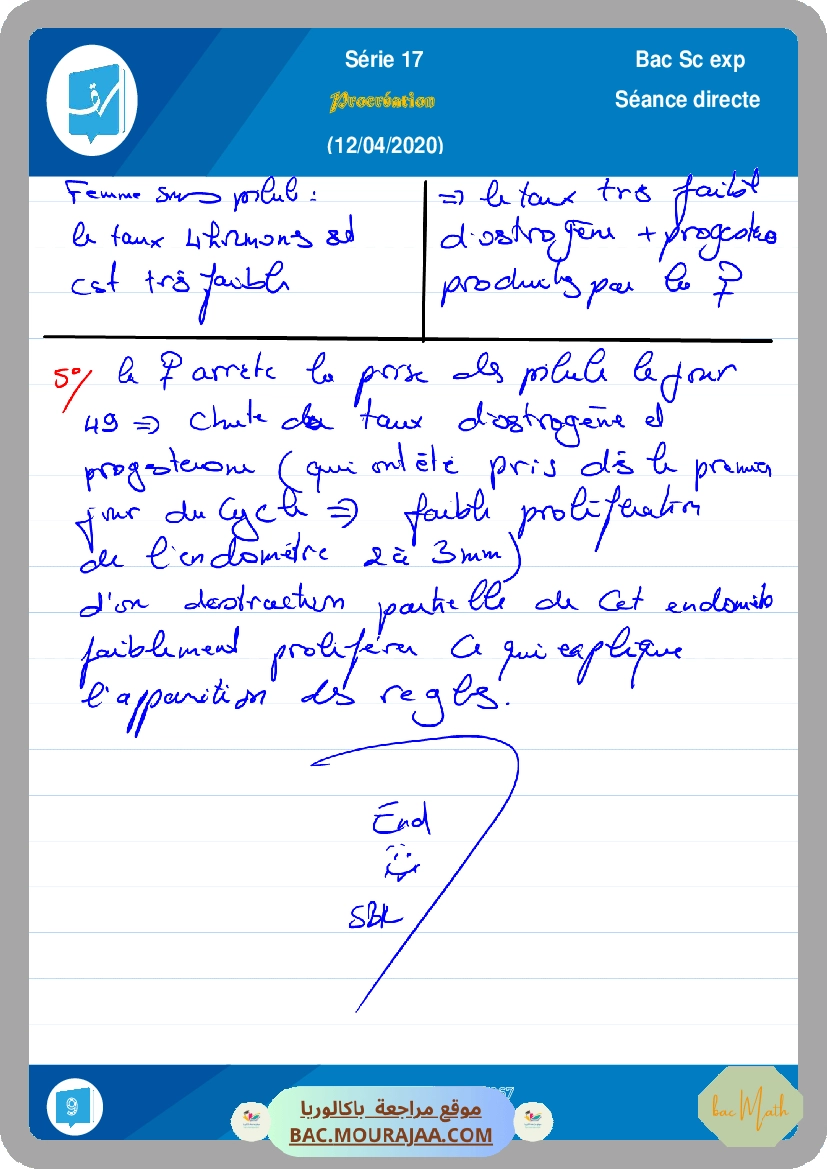 Série 17
Procréation
(12/04/2020)
Bac Sc exp
Séance directe
Femme sous pilule :
le taux 4 hormones
est très faible
=> le taux très faible
d'ostrogène + progeste
produits par la ♀
5°/ la ♀ arrete la prise des pilule le jour
49 => chute du taux d'ostrogène et
progesterone (qui ont été pris dès le premier
jour du cycle => faible proliferation
de l'endomètre 2 à 3mm)
d'on destruction partielle de cet endomètre
faiblement proliférer ce qui explique
l'apparition des regles.
End
SBK
9
موقع مراجعة باكالوريا
BAC.MOURAJAA.COM
bac Math